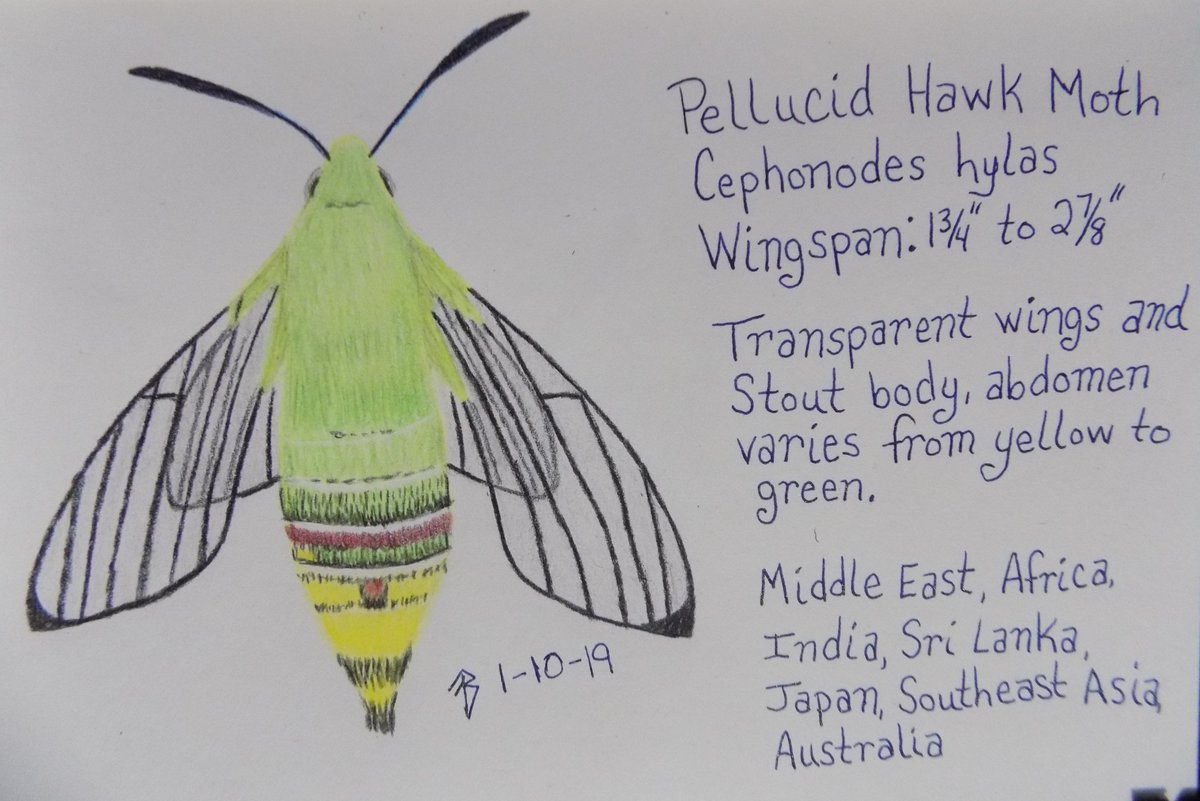 Pellucid Hawk Moth
Cephonodes hylas
Wingspan: 1¾" to 2⅞"
Transparent wings and
Stout body, abdomen
varies from yellow to
green.
Middle East, Africa,
India, Sri Lanka,
Japan, Southeast Asia,
Australia
1-10-19